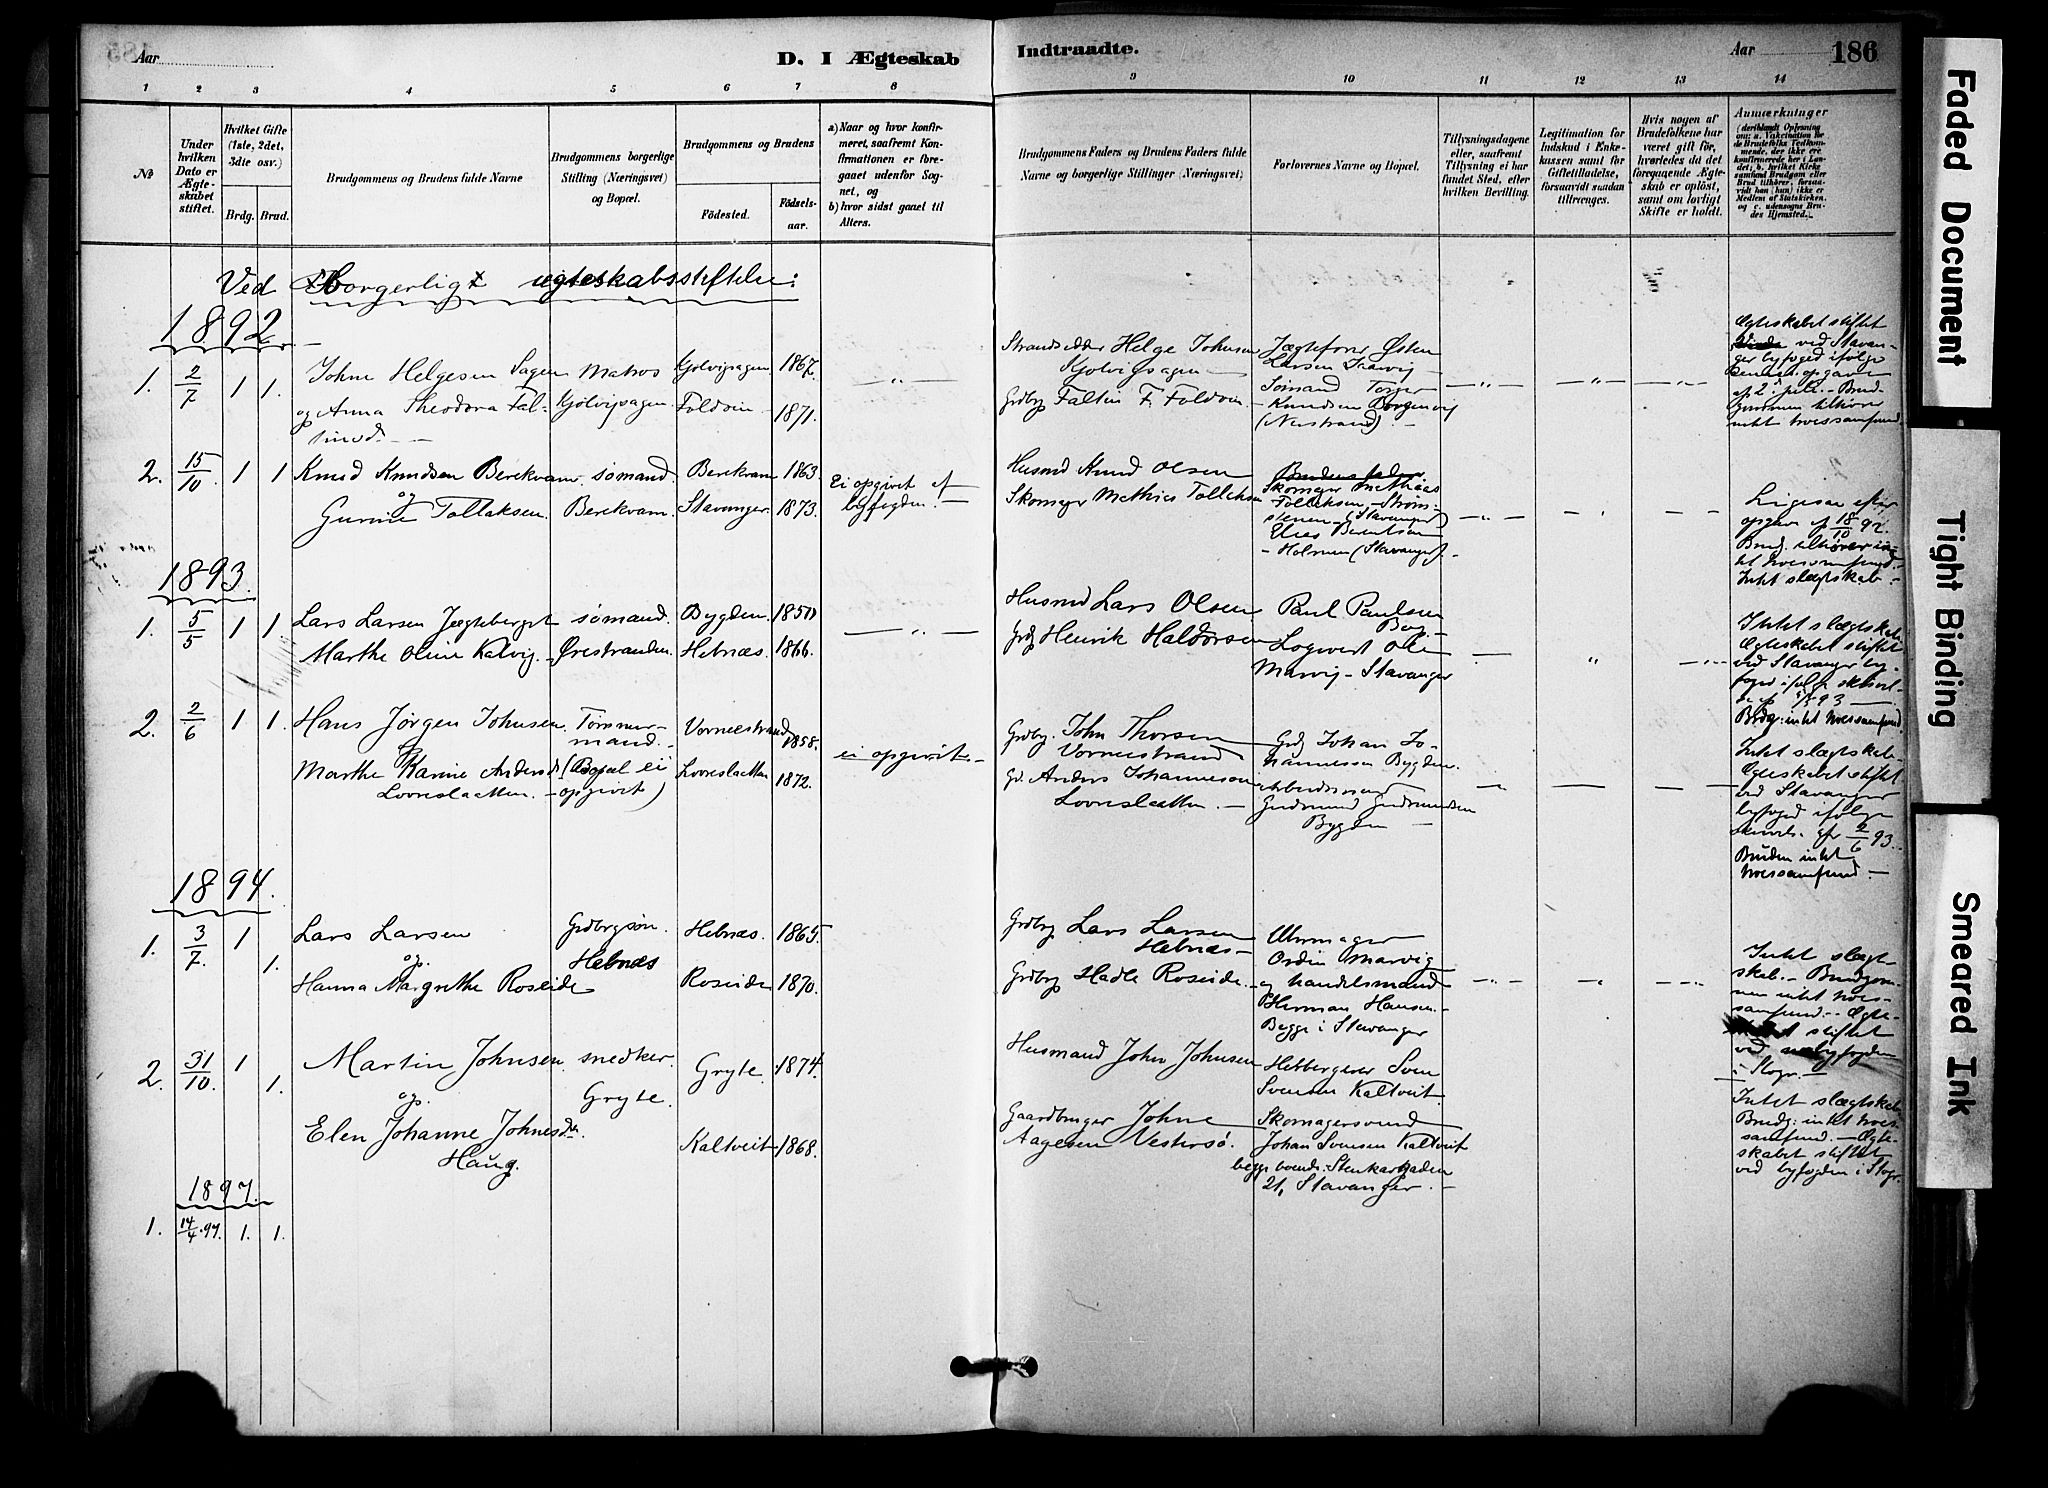 Aar
D. I Ægteskab
Indtraadte.
Aar
186
1 2 3 4 5 6 7 8 9 10 11 12 13 14
No
Under hvilken Dato er Ægteskabet stiftet.
Hvilket Gifte (1ste, 2det, 3die osv.)
Brdg. Brud.
Brudgommens og Brudens fulde Navne
Brudgommens borgerlige Stilling (Næringsvei) og Bopæl.
Brudgommens og Brudens
Födested.
Födselsaar.
a) Naar og hvor konfirmeret, saafremt Konfirmationen er foregaaet udenfor Sognet, og
b) hvor sidst gaaet til Alters.
Brudgommens Faders og Brudens Faders fulde Navne og borgerlige Stillinger (Næringsvei)
Forlovernes Navne og Bopæl.
Tillysningsdagene eller, saafremt Tillysning ei har fundet Sted, efter hvilken Bevilling.
Legitimation for Indskud i Enkekassen samt for Giftetilladelse, forsaavidt saadan tiltrænges.
Hvis nogen af Brudefolkene har været gift för, hvorledes da det foregaaende Ægteskab er oplöst, samt om lovligt Skifte er holdt.
Anmærkninger
Ved Borgerligt egteskabsstiftelse:
1892
1. 2/7 1 1.
Johne Helgesen Sagen
og Anna Theodora Fal-
Matros
Kjølvigsagen
Kjølvigsagen 1867.
Foldøen 1871.
Strandsidder Helge Johnsen
Kjølvigsagen
Grdbrg Falten F. Foldøen
Jægtefører Østen
Larsen
Sømand Torger
Knudsen Borgenvig
(Nerstrand).
Ægteskabet stiftet
ved Stavan-
ger byfoged ifølge
2. 15/10 1 1
Knud Knudsen Berekvam
og
Gurine Tollaksen.
sømand.
Berekvam.
Berekvam 1863
Stavanger. 1873.
Ei opgivet af
byfogden.
Husmd Knud Olsen
Skomager Mathias Tollaksen
Skomager Mathias
Tollaksen, Strøm-
stenen (Stavanger)
Elias Berentsen
Holmen (Stavanger).
Ligesaa efter
opgave af 18/10 92.
Intet slægtskab
1893.
1. 5/5 1 1.
Lars Larsen Jægteberget
Marthe Oline Kalvig.
sømand.
Ørestranden.
Bygden. 1850
Hebnæs. 1866.
Husmd Lars Olsen
Grdbr Henrik Haldorsen
Paul Paulsen
Bog
Logvert Ole
Marvig - Stavanger
Intet slægtskab.
Ægteskabet stiftet
ved Stavanger by-
2. 2/6 1 1.
Hans Jørgen Johnsen
og
Marthe Karine Andersd
Lovreslætten.
Tømmer-
mand.
(Bopæl ei
opgivet)
Vorneestrand 1858.
Lovreslætten 1872.
ei opgivet.
Grdbr. John Thorsen
Vorneestrand
Gr. Anders Johannesen
Lovreslætten.
Grdbr Johan Jo-
hannessen Bygden.
Arbeidsmand
Gudmund Gudmundsen
Bygden
Brdg: intet troessamfund
Intet slægtskab.
Ægteskabet stiftet
ved Stavanger
byfoged ifølge
2/6 93.
Bruden intet
troessamfund.
1894.
1. 3/7. 1 1.
Lars Larsen
og
Hanna Margrethe Roseide
Grdbrgsøn.
Hebnæs
Hebnæs. 1865.
Roseide 1870.
Grdbrg Lars Larsen
Hebnæs
Grdbrg Hadle Roseide.
Uhrmager
Ordin Marvig
og handelsmand
Herman Hansen.
Begge i Stavanger
Intet slægt-
skab. - Brudgom-
men intet troes-
samfund. - Ægte-
skabet stiftet
ved byfogden
i Stvgr.
2. 31/10. 1 1.
Martin Johnsen
og
Elen Johanne Johnesdtr.
Haug.
snedker.
Gryte.
Gryte. 1874.
Kaltveit 1868.
Husmand John Johnsen
Gaardbruger Johne
Aagesen Vestersø.
Hebbergerer Sven
Svensen Kaltveit.
Skomagersvend
Johan Svensen Kaltveit
begge boende: Stenkargaden
21, Stavanger.
Intet slægtskab.
Brudg: intet troes-
samfund. - Ægte-
skabet stiftet
ved byfogden i Stvgr.
1897.
1. 14/4 97. 1. 1.
Faded Document
Tight Binding
Smeared Ink